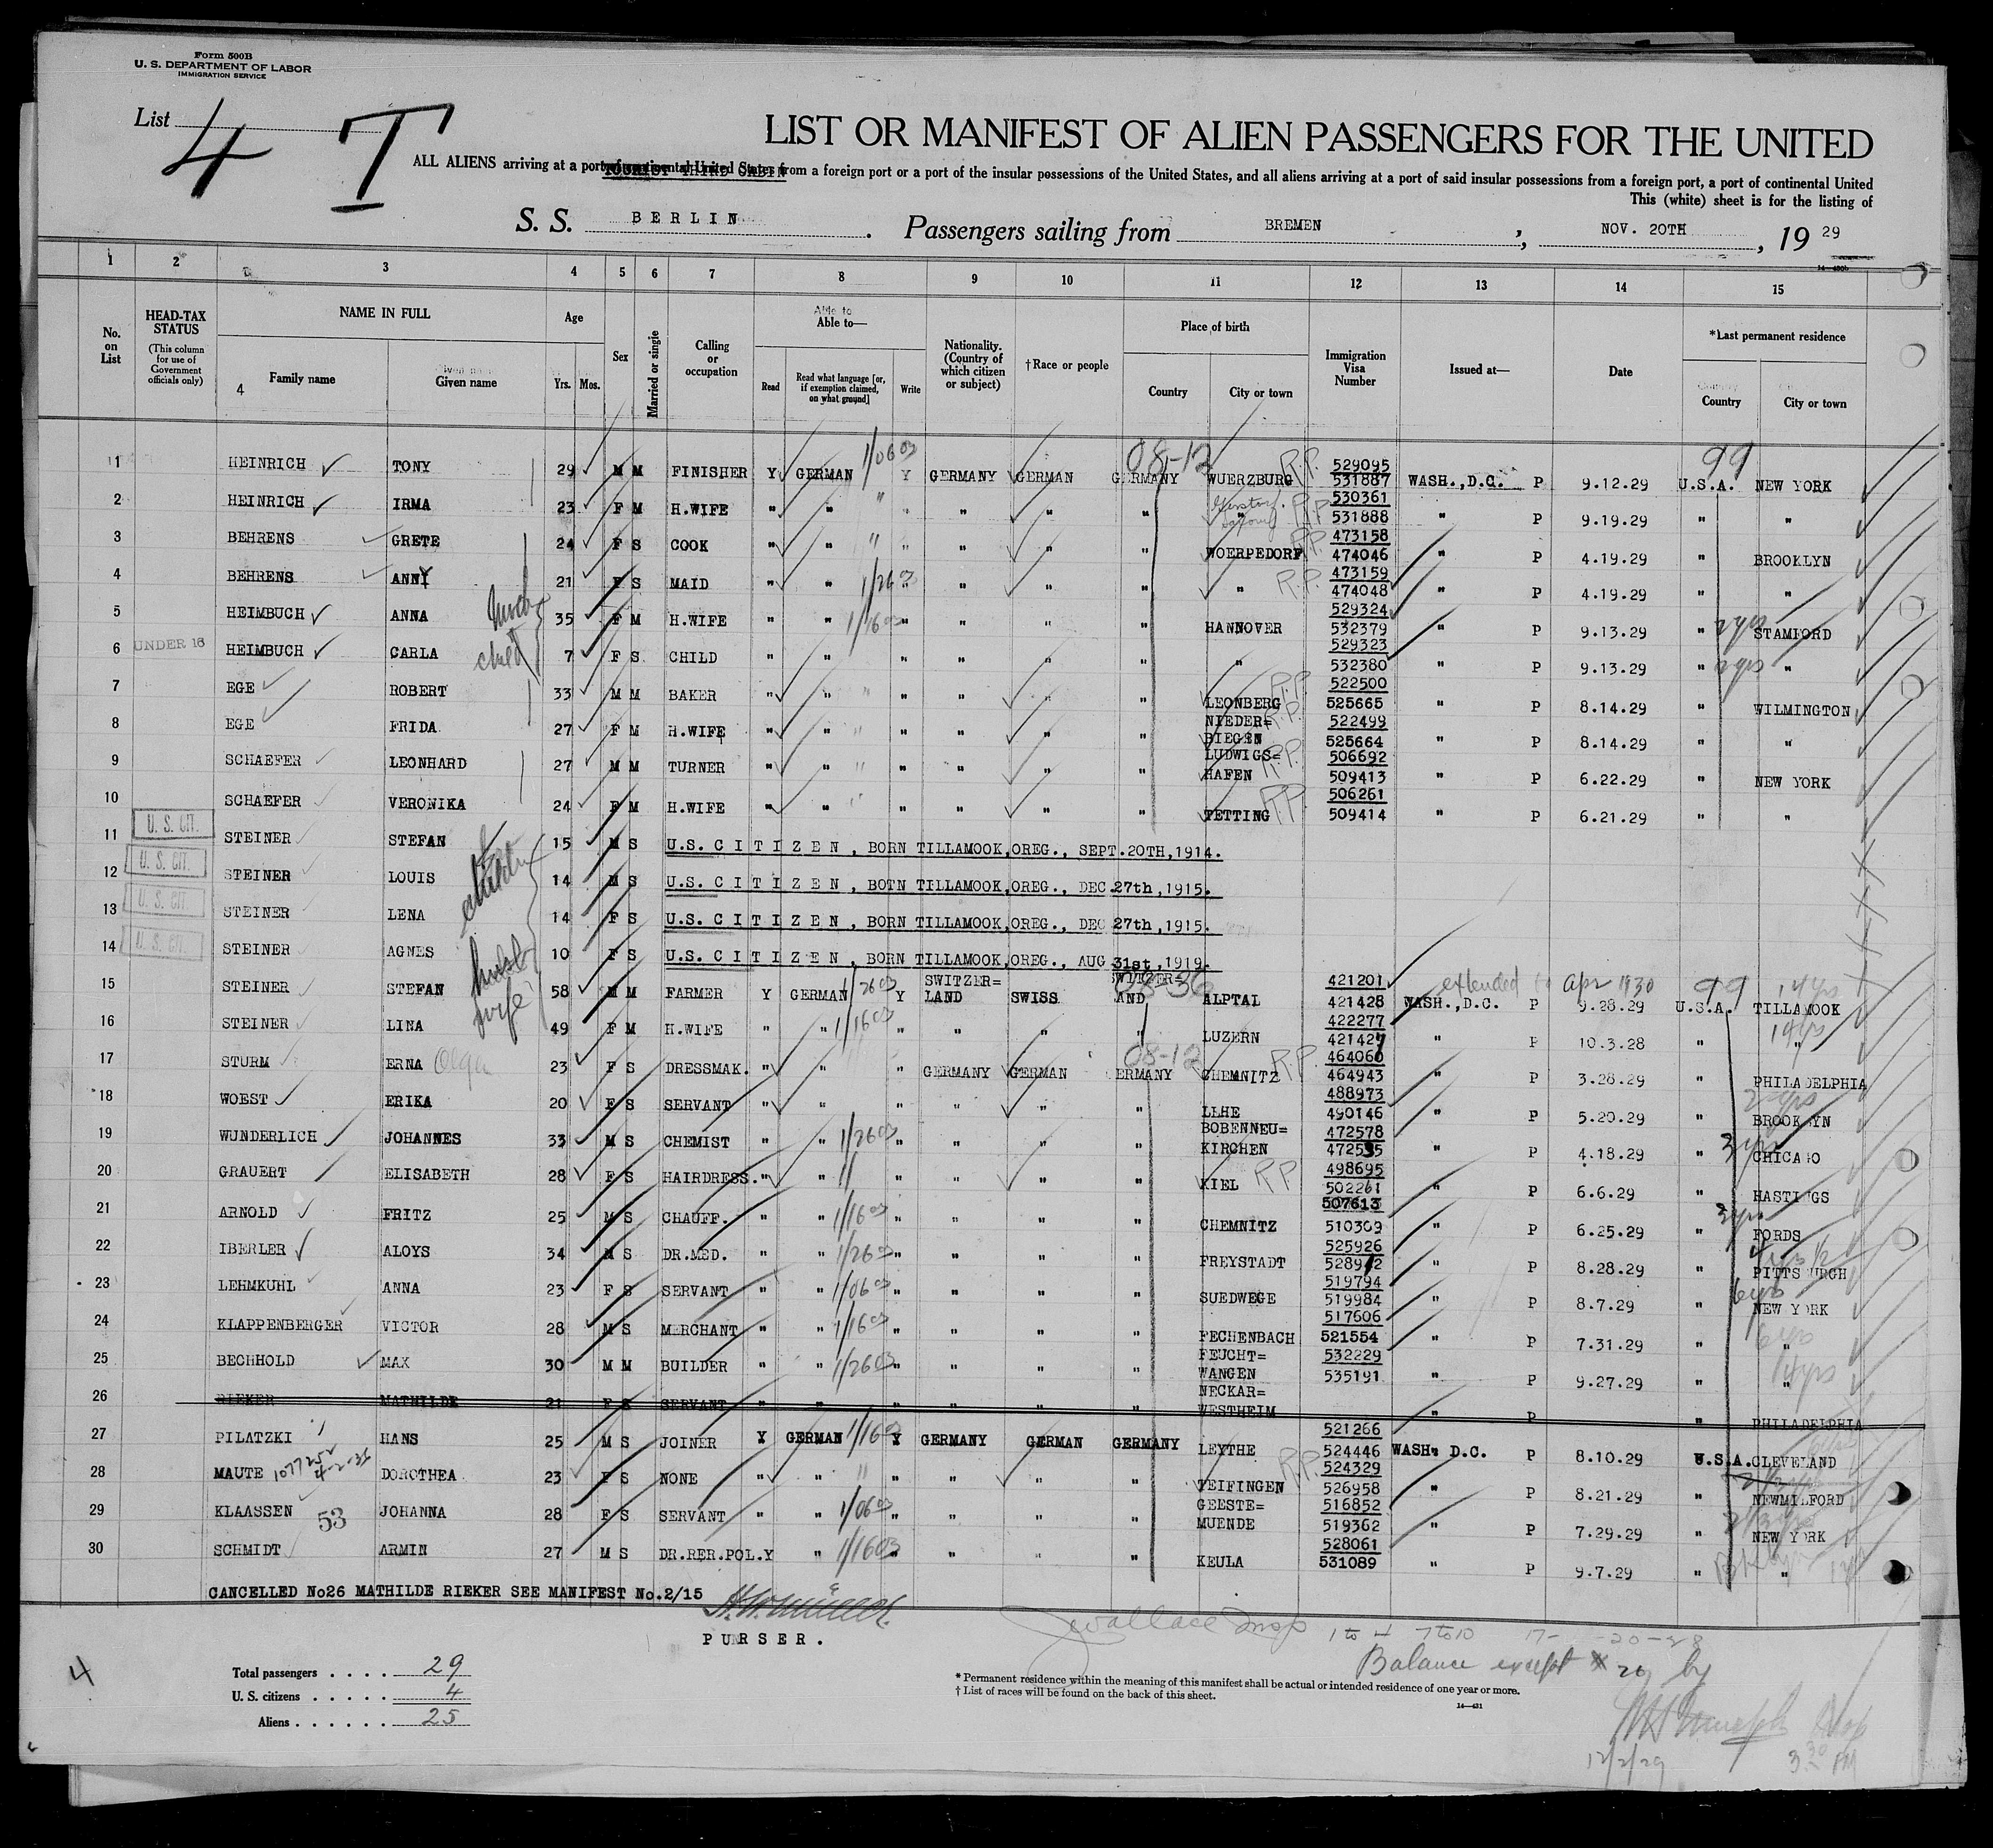 Form 500B
U. S. DEPARTMENT OF LABOR
IMMIGRATION SERVICE
List 4 T
LIST OR MANIFEST OF ALIEN PASSENGERS FOR THE UNITED
ALL ALIENS arriving at a port of continental United States from a foreign port or a port of the insular possessions of the United States, and all aliens arriving at a port of said insular possessions from a foreign port, a port of continental United
TOURIST THIRD CABIN
This (white) sheet is for the listing of
S. S. BERLIN. Passengers sailing from BREMEN, NOV. 20TH, 19 29
1 2 3 4 5 6 7 8 9 10 11 12 13 14 15
No. on List
HEAD-TAX STATUS (This column for use of Government officials only)
NAME IN FULL
Family name Given name
4
Age Yrs. Mos.
Sex
Married or single
Calling or occupation
Able to—
Read
Read what language [or, if exemption claimed, on what ground]
Write
Nationality. (Country of which citizen or subject)
†Race or people
Place of birth
Country City or town
Immigration Visa Number
Issued at—
Date
*Last permanent residence
Country City or town
1 HEINRICH TONY 29 M M FINISHER Y GERMAN Y GERMANY GERMAN GERMANY WUERZBURG 529095 531887 WASH.,D.C. P 9.12.29 U.S.A. NEW YORK
08-12 99
2 HEINRICH IRMA 23 F M H.WIFE " " " " " " 530361 531888 " P 9.19.29 " "
3 BEHRENS GRETE 24 F S COOK " " " " " " WOERPEDORF 473158 474046 " P 4.19.29 " BROOKLYN
4 BEHRENS ANNY 21 F S MAID " " " " " " " 473159 474048 " P 4.19.29 " "
5 HEIMBUCH ANNA 35 F M H.WIFE " " " " " " HANNOVER 529324 532379 " P 9.13.29 " 2yrs STAMFORD
6 UNDER 16 HEIMBUCH CARLA child 7 F S CHILD " " " " " " " 529323 532380 " P 9.13.29 " 2yrs "
7 EGE ROBERT 33 M M BAKER " " " " " " LEONBERG 522500 525665 " P 8.14.29 " WILMINGTON
8 EGE FRIDA 27 F M H.WIFE " " " " " " NIEDER= BIEGEN 522499 525664 " P 8.14.29 " "
9 SCHAEFER LEONHARD 27 M M TURNER " " " " " " LUDWIGS= HAFEN 506692 509413 " P 6.22.29 " NEW YORK
10 SCHAEFER VERONIKA 24 F M H.WIFE " " " " " " TETTING 506261 509414 " P 6.21.29 " "
11 U. S. CIT. STEINER STEFAN 15 M S U.S. CITIZEN, BORN TILLAMOOK,OREG., SEPT.20TH,1914.
12 U. S. CIT. STEINER LOUIS 14 M S U.S. CITIZEN, BOTN TILLAMOOK,OREG., DEC.27th,1915.
13 U. S. CIT. STEINER LENA 14 F S U.S. CITIZEN, BORN TILLAMOOK,OREG., DEC 27th,1915.
14 U. S. CIT. STEINER AGNES 10 F S U.S. CITIZEN, BORN TILLAMOOK,OREG., AUG 31st,1919.
extended to Apr 1930
15 STEINER STEFAN 58 M M FARMER Y GERMAN Y SWITZER= LAND SWISS ALPTAL 421201 421428 WASH.,D.C. P 9.28.29 U.S.A. 14yrs TILLAMOOK
99
16 STEINER LINA wife 49 F M H.WIFE " " " " " " LUZERN 422277 421427 " P 10.3.28 " 14yrs "
17 STURM ERNA Olga 23 F S DRESSMAK. " " " GERMANY GERMAN ERMANY CHEMNITZ 464060 464943 " P 3.28.29 " PHILADELPHIA
08-12
18 WOEST ERIKA 20 F S SERVANT " " " " " " LLHE 488973 490146 " P 5.20.29 " BROOKLYN
19 WUNDERLICH JOHANNES 33 M S CHEMIST " " " " " " BOBENNEU= KIRCHEN 472578 472535 " P 4.18.29 " 3yrs CHICAGO
20 GRAUERT ELISABETH 28 F S HAIRDRESS. " " " " " " KIEL 498695 502261 " P 6.6.29 " HASTINGS
21 ARNOLD FRITZ 25 M S CHAUFF. " " " " " " CHEMNITZ 507613 510309 " P 6.25.29 " 3yrs FORDS
22 IBERLER ALOYS 34 M S DR.MED. " " " " " " FREYSTADT 525926 528912 " P 8.28.29 " PITTSBURGH
23 LEHMKUHL ANNA 23 F S SERVANT " " " " " " SUEDWEGE 519794 519984 " P 8.7.29 " 6yrs NEW YORK
24 KLAPPENBERGER VICTOR 28 M S MERCHANT " " " " " " FECHENBACH 517606 521554 " P 7.31.29 " 6yrs "
25 BECHHOLD MAX 30 M M BUILDER " " " " " " FEUCHT= WANGEN 532229 535191 " P 9.27.29 " "
26 RIEKER MATHILDE 21 F S SERVANT " " " " " " NECKAR= WESTHEIM " P " PHILADELPHIA
27 PILATZKI HANS 25 M S JOINER Y GERMAN Y GERMANY GERMAN GERMANY LEYTHE 521266 524446 WASH. D.C. P 8.10.29 U.S.A. CLEVELAND
28 MAUTE DOROTHEA 23 F S NONE " " " " " " TEIFINGEN 524329 526958 " P 8.21.29 " NEWMILFORD
29 KLAASSEN 53 JOHANNA 28 F S SERVANT " " " " " " GEESTE= MUENDE 516852 519362 " P 7.29.29 " NEW YORK
30 SCHMIDT ARMIN 27 M S DR.RER.POL.Y " " " " " KEULA 528061 531089 " P 9.7.29 " "
CANCELLED No26 MATHILDE RIEKER SEE MANIFEST No.2/15
PURSER.
Wallace Insp 1 to 4 7 to 10 17- -20-28
Balance except 26 by
4
Total passengers . . . . 29
U. S. citizens . . . . . 4
Aliens . . . . . . 25
* Permanent residence within the meaning of this manifest shall be actual or intended residence of one year or more.
† List of races will be found on the back of this sheet.
14—431
12/2/29 3 30 PM